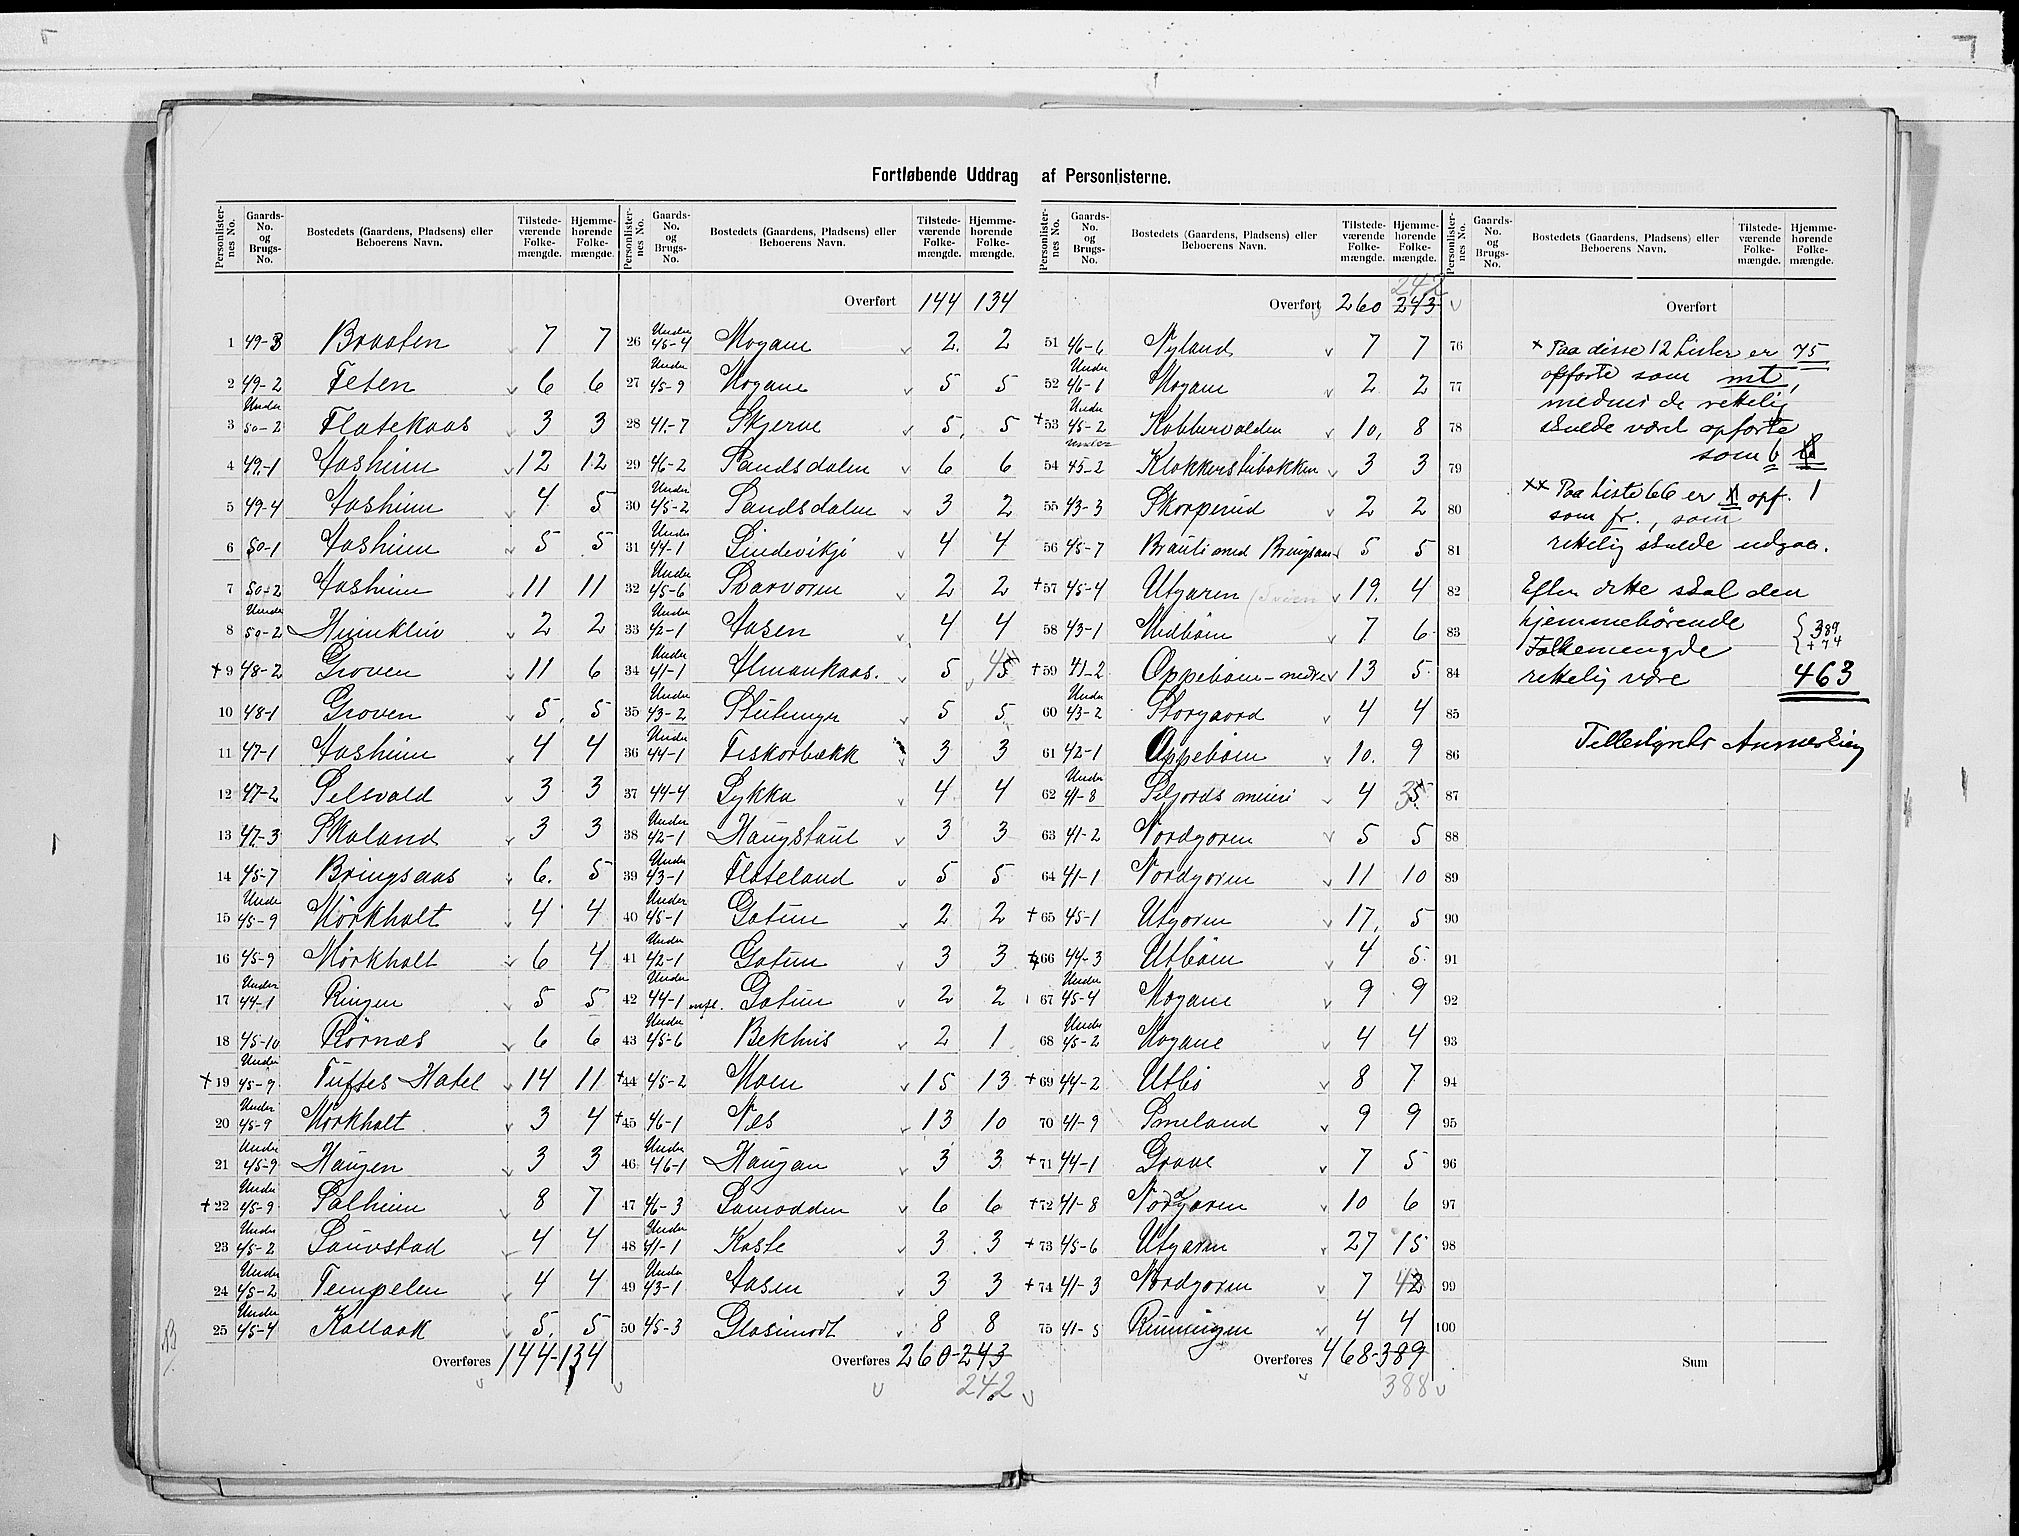 Fortløbende Uddrag af Personlisterne.
Personlisternes No. | Gaards-No. og Brugs-No. | Bostedets (Gaardens, Pladsens) eller Beboerens Navn. | Tilstedeværende Folkemængde. | Hjemmehørende Folkemængde.
1 49-3 Braaten 7 7
2 49-2 Teten 6 6
3 Under 50-2 Flatekaas 3 3
4 49-1 Aasheim 12 12
5 49-4 Aasheim 4 5
6 50-1 Aasheim 5 5
7 50-2 Aasheim 11 11
8 Under 50-2 Heimkliv 2 2
+ 9 48-2 Groven 11 6
10 48-1 Groven 5 5
11 47-1 Aasheim 4 4
12 47-2 Selsvald 3 3
13 47-3 Skaland 3 3
14 45-7 Bringsaas 6 5
15 Under 45-9 Mörkholt 4 4
16 45-9 Mörkholt 6 4
17 Under 44-1 Ringen 5 5
18 45-10 Rörnæs 6 6
+ 19 Under 45-9 Tuftes Hotel 14 11
20 Under 45-9 Mörkholt 3 4
21 Under 45-9 Haugen 3 3
+ 22 Under 45-9 Salheim 8 7
23 Under 45-2 Lauvstad 4 4
24 Under 45-2 Tempelen 4 4
25 Under 45-4 Kallaak 5 5
Overføres 144-134
Personlisternes No. | Gaards-No. og Brugs-No. | Bostedets (Gaardens, Pladsens) eller Beboerens Navn. | Tilstedeværende Folkemængde. | Hjemmehørende Folkemængde.
Overført 144 134
26 Under 45-4 Mogane 2 2
27 Under 45-9 Mogane 5 5
28 41-7 Skjerve 5 5
29 46-2 Sandsdalen 6 6
30 Under 45-2 Sandsdalen 3 2
31 Under 44-1 Lindevikji 4 4
32 Under 45-6 Svarvoren 2 2
33 Under 42-1 Aasen 4 4
34 Under 41-1 Almankaas. 5 4
35 Under 43-2 Stutenger 5 5
36 Under 44-1 Fiskorbækk 3 3
37 44-4 Lykka 4 4
38 Under 42-1 Haugstaul 3 3
39 Under 43-1 Flateland 5 5
40 Under 45-1 Gotun 2 2
41 Under 42-1 Gotun 3 3
42 Under 44-1 Gotun 2 2
43 Under 45-6 Bekhus 2 1
+ 44 45-2 Moen 15 13
+ 45 46-1 Nes 13 10
46 Under 46-1 Haugan 3 3
47 46-3 Lamodden 6 6
48 Under 41-1 Kaste 3 3
49 Under 43-1 Aasen 3 3
50 45-3 Glasimodt 8 8
Overføres 260-243
242
Personlisternes No. | Gaards-No. og Brugs-No. | Bostedets (Gaardens, Pladsens) eller Beboerens Navn. | Tilstedeværende Folkemængde. | Hjemmehørende Folkemængde.
242
Overført 260 243
51 46-6 Nyland 7 7
52 Under 46-1 Mogane 2 2
+ 53 Under 45-2 Kobbervolden 10 8
54 under 45-2 Klokkerslibakken 3 3
55 43-3 Skorperud 2 2
56 45-7 Brauti med Bringsaas 5 5
+ 57 45-4 Utgaren 19 4
58 43-1 Midböin 7 6
+ 59 41-2 Oppeböin-nedre 13 5
60 Under 43-2 Storgaard 4 4
61 42-1 Oppeböin 10 9
62 Under 41-8 Seljords meieri 4 3
63 41-2 Nordgoren 5 5
64 41-1 Nordgoren 11 10
+ 65 45-1 Utgoren 17 5
66 44-3 Utböin 4 5
67 Under 45-4 Mogane 9 9
68 Under 45-2 Mogane 4 4
+ 69 44-2 Utbö 8 7
70 41-9 Smeland 9 9
+ 71 44-1 Grave 7 5
+ 72 41-8 Nordgaren 10 6
+ 73 45-6 Utgaren 27 15
+ 74 41-3 Nordgoren 7 4
75 41-5 Rinningen 4 4
Overføres 468-389
388
Personlisternes No. | Gaards-No. og Brugs-No. | Bostedets (Gaardens, Pladsens) eller Beboerens Navn. | Tilstedeværende Folkemængde. | Hjemmehørende Folkemængde.
Overført
76 + Paa disse 12 Lister er 75
77 opförte som mt,
medens de rettelig
78 skulde været opförte
79 som b
80 ++ Paa Liste 66 er 1 opf. 1
som fr., som
81 rettelig skulde udgaa.
82 Efter dette skal den
83 hjemmehörende { 389
Folkemengde { +74
84 rettelig være 463
85
86 Tellestyrets Anmerking
87
88
89
90
91
92
93
94
95
96
97
98
99
100
Sum